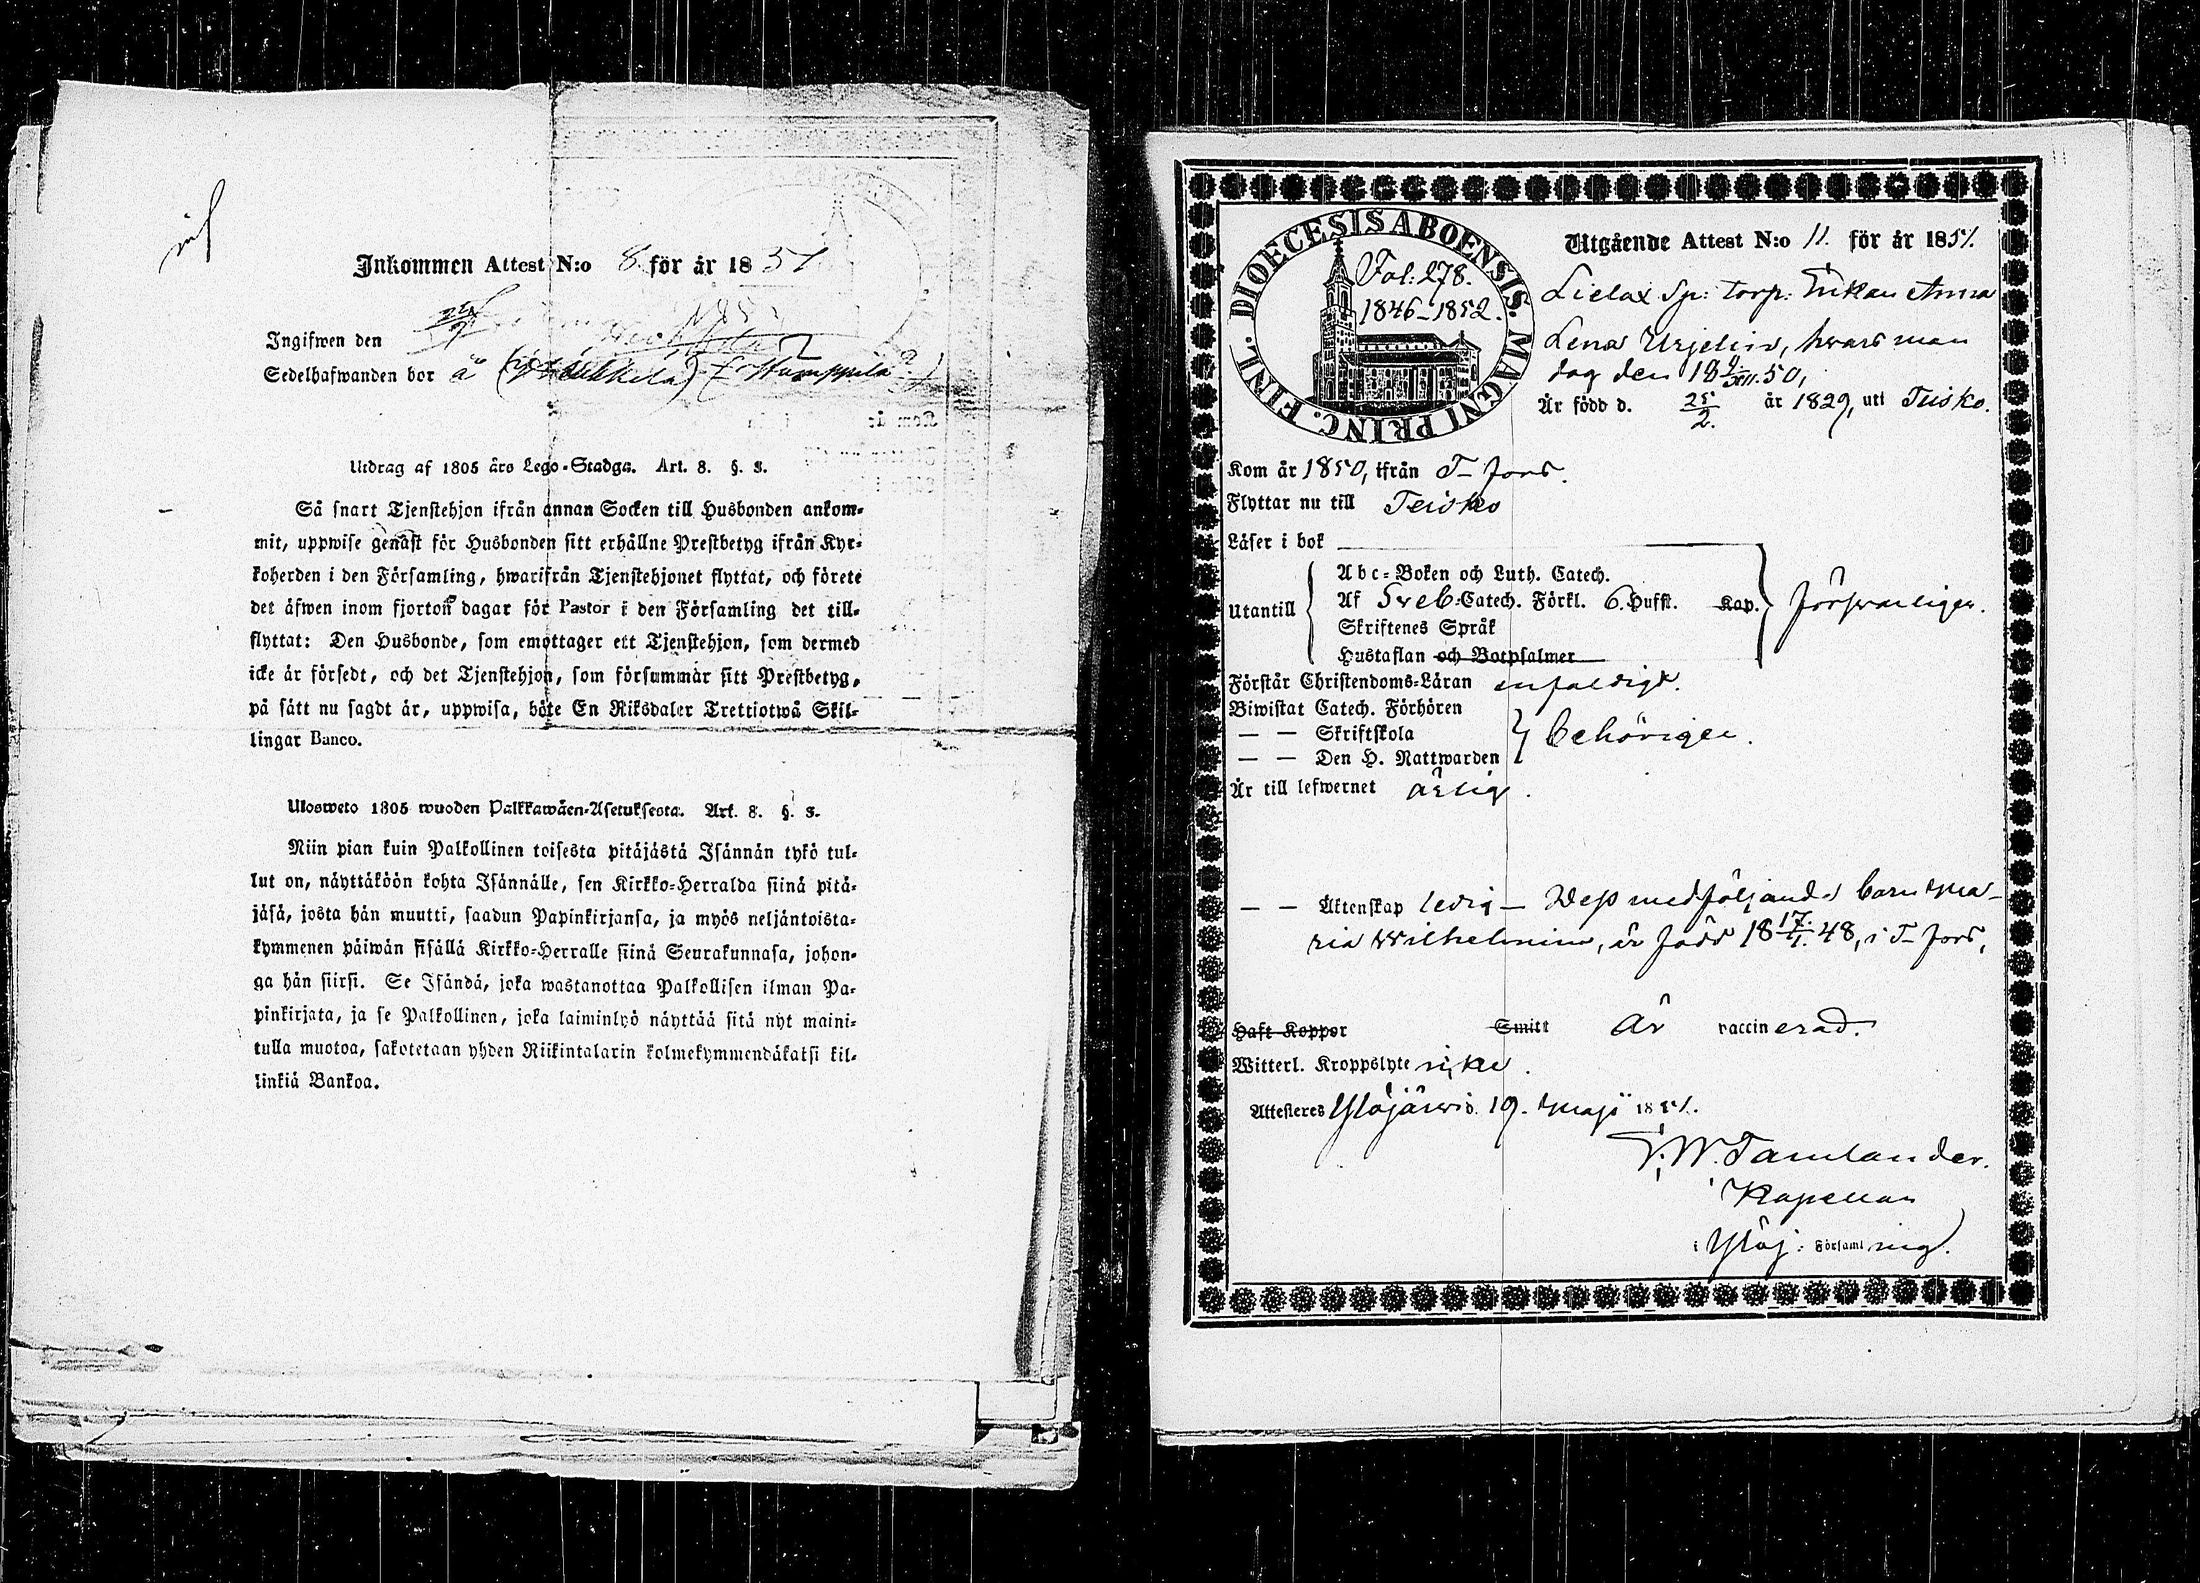 Inkommen Attest N:o 8 för år 1851
Ingifwen den
Sedelhafwanden bor å
Utdrag af 1805 års Lego-Stadga. Art. 8. §. 3.
Så snart Tjenstehjon ifrån annan Socken till Husbonden ankom-
mit, uppwise genast för Husbonden sitt erhållne Prestbetyg ifrån Kyr-
koherden i den Församling, hwarifrån Tjenstehjonet flyttat, och förete
det äfwen inom fjorton dagar för Pastor i den Församling det till-
flyttat: Den Husbonde, som emottager ett Tjenstehjon, som dermed
icke är försedt, och det Tjenstehjon, som försummar sitt Prestbetyg,
på sätt nu sagdt är, uppwisa, böte En Riksdaler Trettiotwå Skil-
lingar Banco.
Ulosweto 1805 wuoden Palkkawäen-Asetuksesta. Art. 8. §. 3.
Niin pian kuin Palkollinen toisesta pitäjästä Isännän tykö tul-
lut on, näyttäköön kohta Isännälle, sen Kirkko-Herralda siinä pitä-
jäsä, josta hän muutti, saadun Papinkirjansa, ja myös neljäntoista-
kymmenen päiwän sisällä Kirkko-Herralle siinä Seurakunnasa, johon-
ga hän siirsi. Se Isändä, joka wastanottaa Palkollisen ilman Pa-
pinkirjata, ja se Palkollinen, joka laiminlyö näyttää sitä nyt maini-
tulla muotoa, sakotetaan yhden Riikintalarin kolmekymmendäkatsi kil-
linkiä Bankoa.
DIOECESIS ABOENSIS. MAGNI PRINC. FINL.
Fol: 278.
1846–1852.
Utgående Attest N:o 11. för år 1851.
Lielax Sp: torp: Enkan Anna
Lena Urjelin, hvars man
dog den 18 9/XII. 50,
Är född d. 25/2. år 1829, uti Teisko.
Kom år 1850, ifrån T– fors.
Flyttar nu till Teisko
Läser i bok
Utantill
Abc-Boken och Luth. Catech.
Af Sveb. Catech. Förkl. 6. Hufst. Kap.
Skriftenes Språk
Hustaflan och Botpsalmer
försvarligen.
Förstår Christendoms-Läran enfaldigt.
Biwistat Catech. Förhören
— — Skriftskola
— — Den H. Nattwarden
behörigen.
Är till lefwernet ärlig.
— — Äktenskap ledig – Dess medföljande barn Ma-
ria Wilhelmina, är född 18 17/1. 48, i T– fors,
Haft Koppor Smitt Är vaccinerad.
Witterl. Kroppslyte icke.
Attesteres Ylöjärvi d. 19. Maji 1851.
F. W. Tamlander.
Kapellan
i Ylöj: Församling.